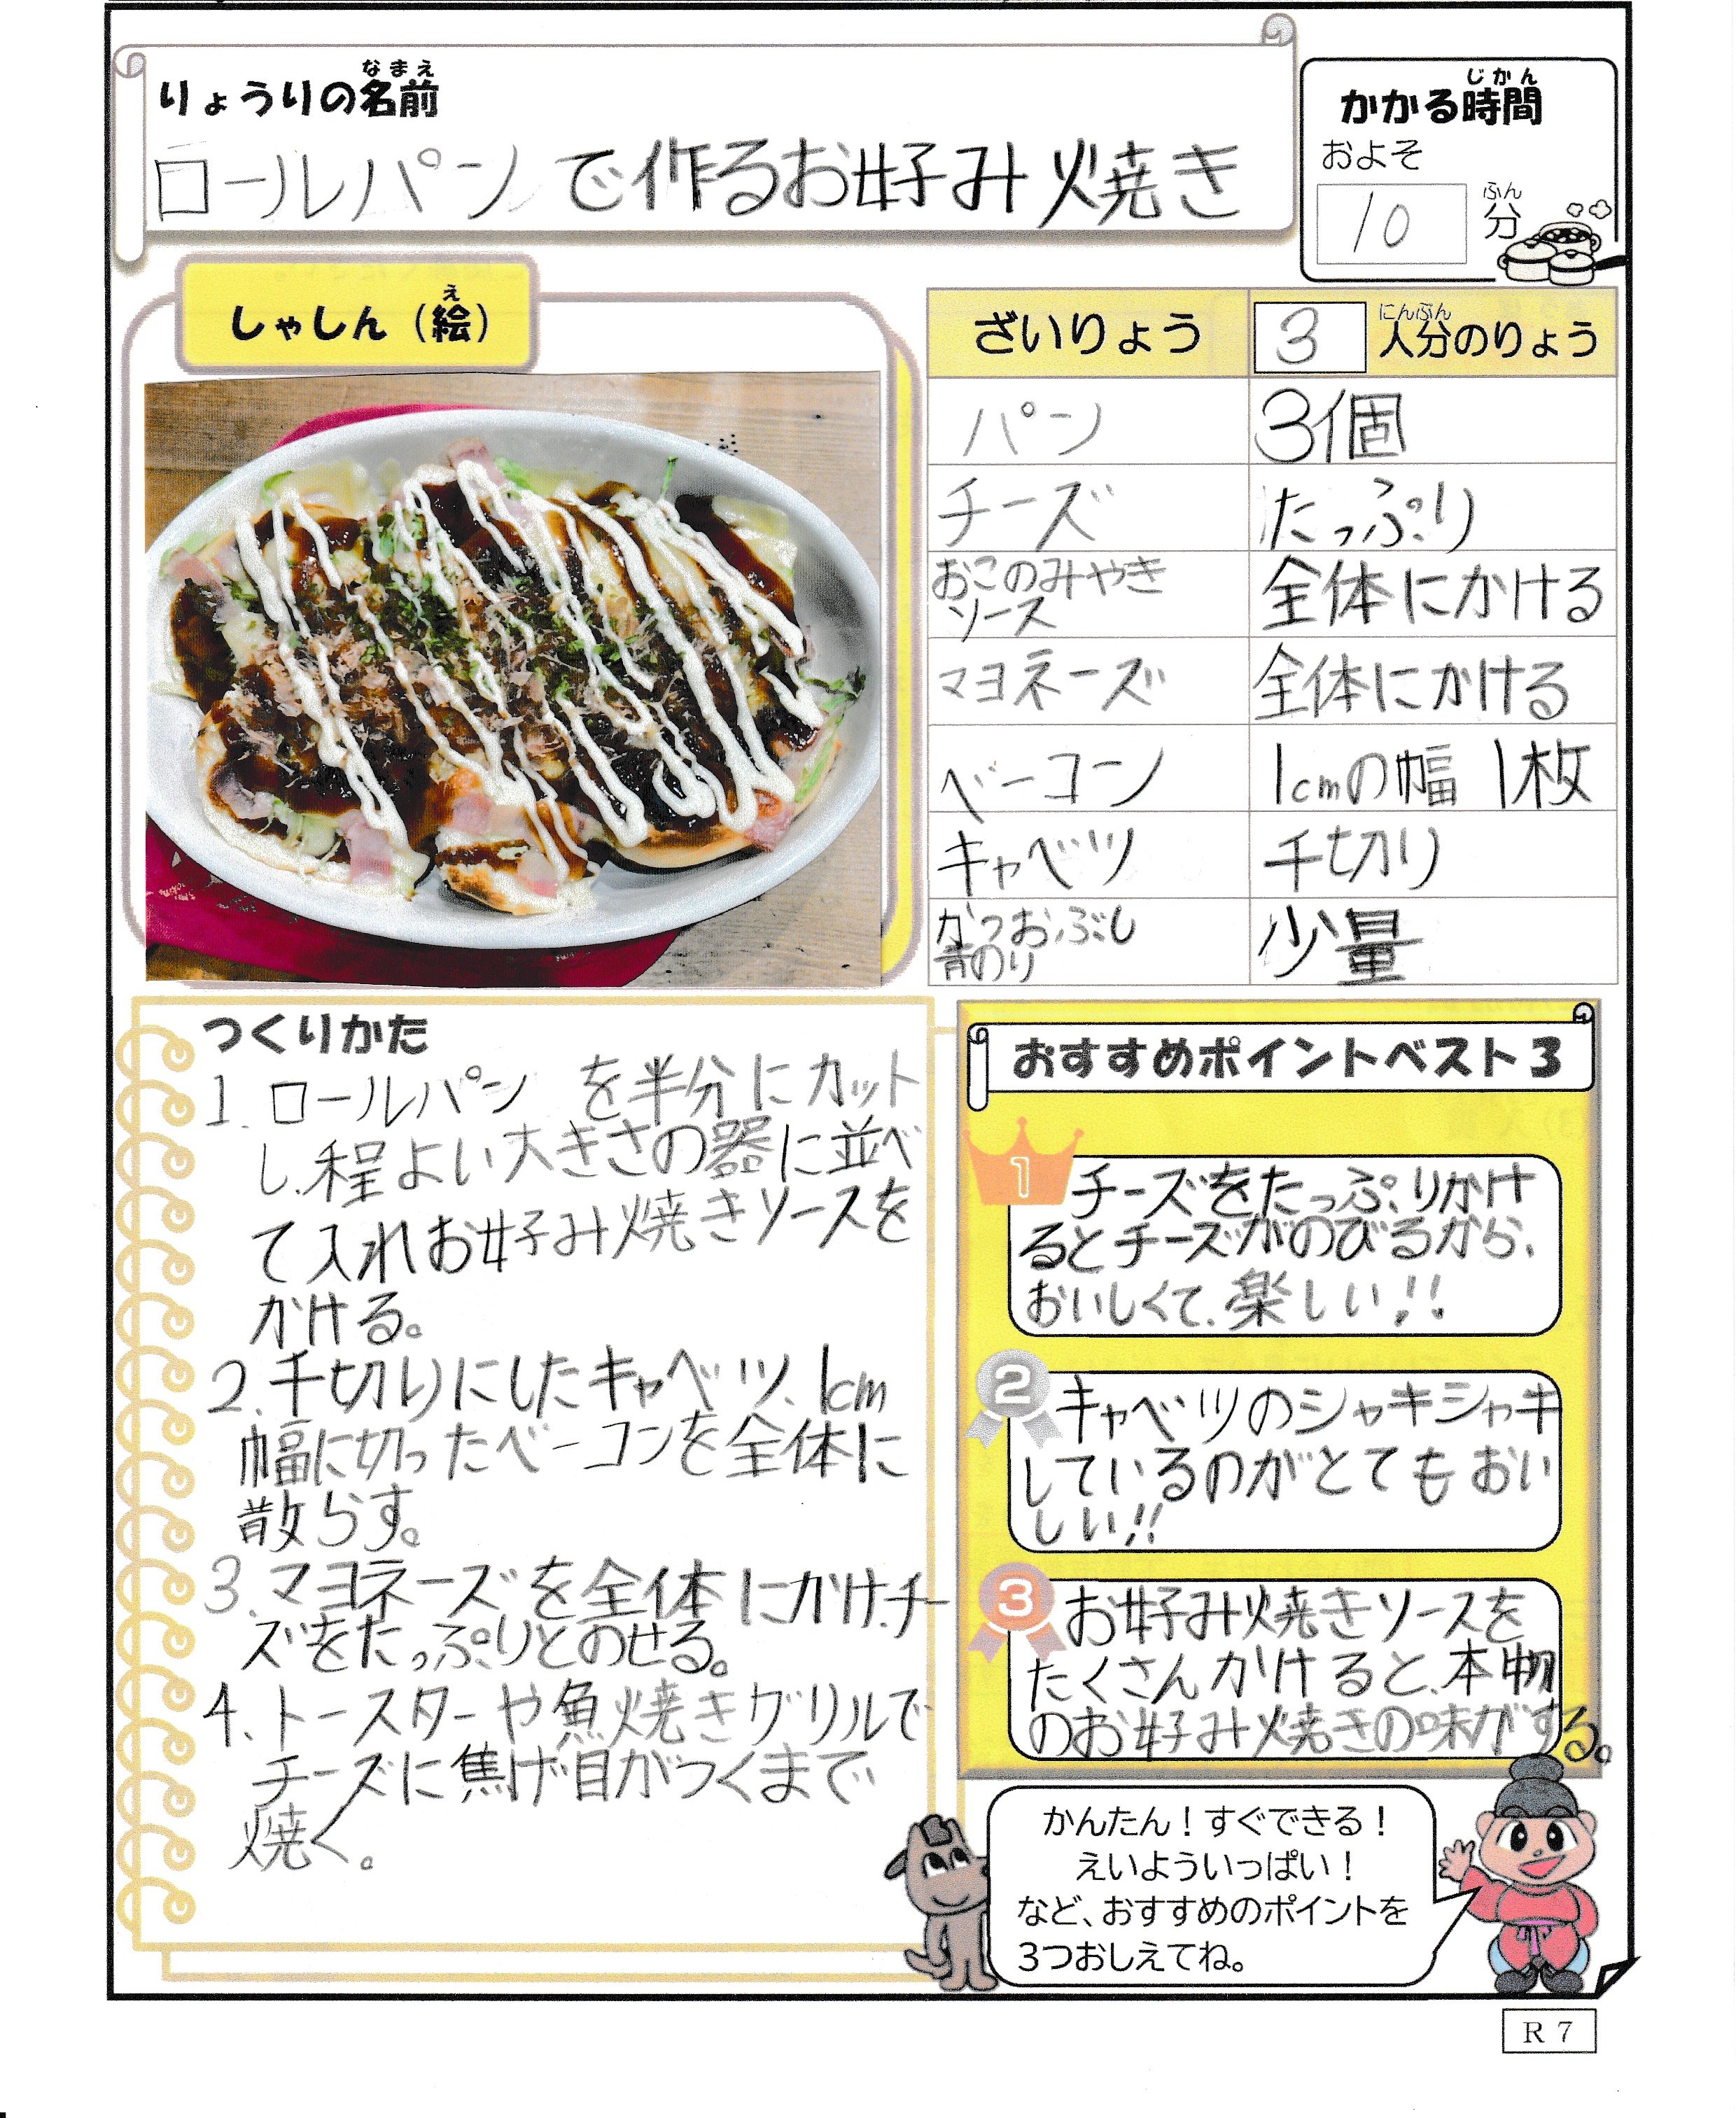 りょうりの名前
なまえ
ロールパンで作るお好み焼き
かかる時間
じかん
およそ
10
分
ふん
しゃしん(絵)
え
ざいりょう 3 人分のりょう
にんぶん
パン 3個
チーズ たっぷり
おこのみやき
ソース 全体にかける
マヨネーズ 全体にかける
ベーコン 1cmの幅 1枚
キャベツ 千切り
かつおぶし
青のり 少量
つくりかた
1.ロールパン を半分にカット
し、程よい大きさの器に並べ
て入れお好み焼きソースを
かける。
2.千切りにしたキャベツ、1cm
幅に切ったベーコンを全体に
散らす。
3.マヨネーズを全体にかけ、チー
ズをたっぷりとのせる。
4、トースターや魚焼きグリルで
チーズに焦げ目がつくまで
焼く。
おすすめポイントベスト3
1
チーズをたっぷりかけ
るとチーズがのびるから、
おいしくて、楽しい!!
2
キャベツのシャキシャキ
しているのがとてもおい
しい!!
3
お好み焼きソースを
たくさんかけると、本物
のお好み焼きの味がする。
かんたん!すぐできる!
えいよういっぱい!
など、おすすめのポイントを
3つおしえてね。
R7